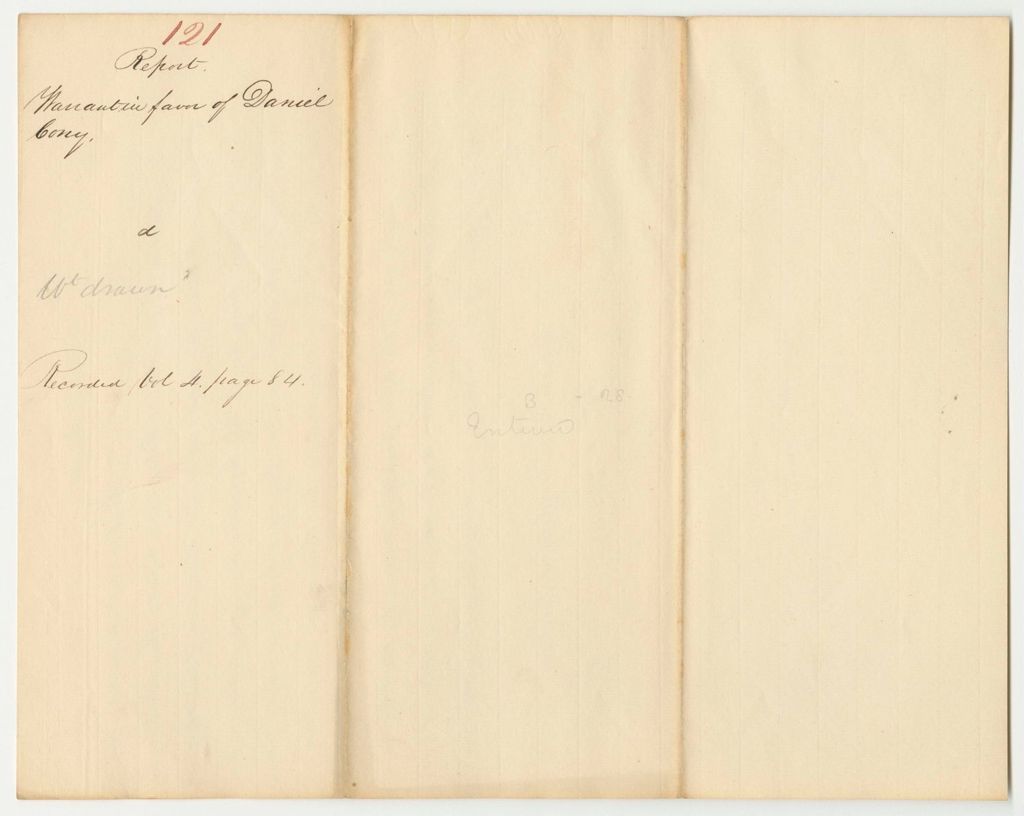 121
Report.
Warrant in favor of Daniel
Cony.
d
Wt drawn
Recorded Vol 4. page 84.
3 - 28
Entered